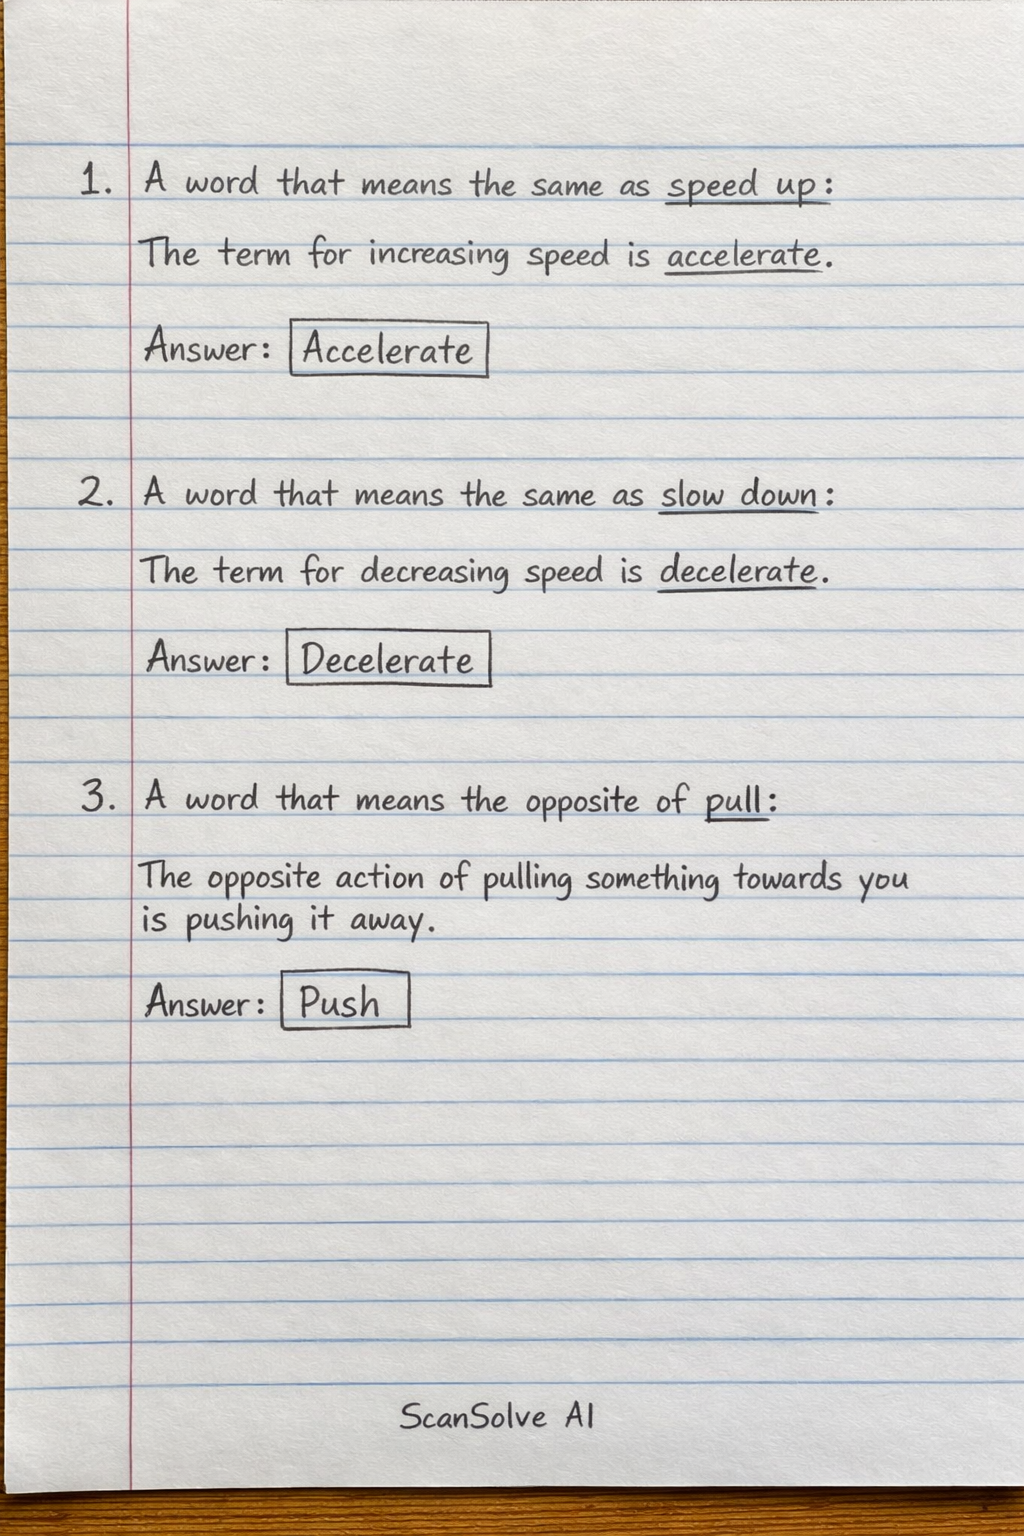 1. A word that means the same as speed up:
The term for increasing speed is accelerate.
Answer: Accelerate
2. A word that means the same as slow down:
The term for decreasing speed is decelerate.
Answer: Decelerate
3. A word that means the opposite of pull:
The opposite action of pulling something towards you
is pushing it away.
Answer: Push
ScanSolve AI